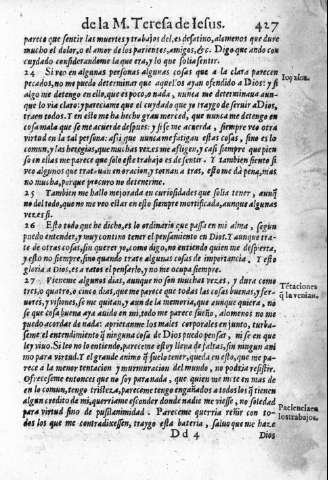 de la M. Teresa de Iesus. 427
parece que sentir las muertes y trabajos del, es desatino, alomenos que dure
mucho el dolor, o el amor de los parientes, amigos, &c. Digo que ando con
cuydado considerandome la que era, y lo que solia sentir.
24 Si veo en algunas personas algunas cosas que a la clara parecen
pecados, no me puedo determinar que aquellos ayan ofendido a Dios: y si
algo me detengo en ello, que es poco, o nada, nunca me determinaua aun-
que lo via claro: y pareciame que el cuydado que yo traygo de seruir a Dios,
traen todos. Y en esto me ha hecho gran merced, que nunca me detengo en
cosa mala que se me acuerde despues: y si se me acuerda, siempre veo otra
virtud en la tal persona: assi que nunca me fatigan estas cosas, sino es lo
comun, y las heregias, que muchas vezes me afligen, y casi siempre que pien
so en ellas me parece que solo este trabajo es de sentir. Y tambien siento si
veo algunos que tratauan en oracion, y tornan a tras, esto me dà pena, mas
no mucha, porque procuro no detenerme.
25 Tambien me hallo mejorada en curiosidades que solia tener, aunq̃
no del todo, que no me veo ella en esto siempre mortificada, aunque algunas
vezes si.
26 Esto todo que he dicho, es lo ordinario que passa en mi alma, segun
puedo entender, y muy contino tener el pensamiento en Dios. Y aunque tra-
te de otras cosas, sin querer yo, como digo, no entiendo quien me despierta,
y esto no siempre, sino quando trato algunas cosas de importancia. Y esto
gloria a Dios, es a ratos el pensarlo, y no me ocupa siempre.
27 Vieneme algunos dias, aunque no son muchas vezes, y dura como
tres, o quatro, o cinco dias, que me parece que todas las cosas buenas, y fer-
uores, y visiones, se me quitan, y aun de la memoria, que aunque quiera, no
se que cosa buena aya auido en mi, todo me parece sueño, alomenos no me
puedo acordar de nada: aprietanme los males corporales en junto, turba-
seme el entendimiento q̃ ninguna cosa de Dios puedo pensar, ni se en que
ley viuo. Si leo no lo entiendo, pareceme estoy llena de faltas, sin ningun ani
mo para virtud. Y el grande animo q̃ suelo tener, queda en esto, que me pa-
rece a la menor tentacion y murmuracion del mundo, no podria resistir.
Ofreceseme entonces que no soy para nada, que quien me mete en mas de
en lo comun, tengo tristeza, pareceme tengo engañados a todos los q̃ tienen
algun credito de mi, querriame esconder donde nadie me viesse, no soledad
para virtud sino de pusilanimidad. Pareceme querria reñir con to-
dos los que me contradixessen, traygo esta bateria, saluo que me haze
Dd 4 Dios
Tētaciones
q̃ la venian.
Paciencia en
los trabajos.